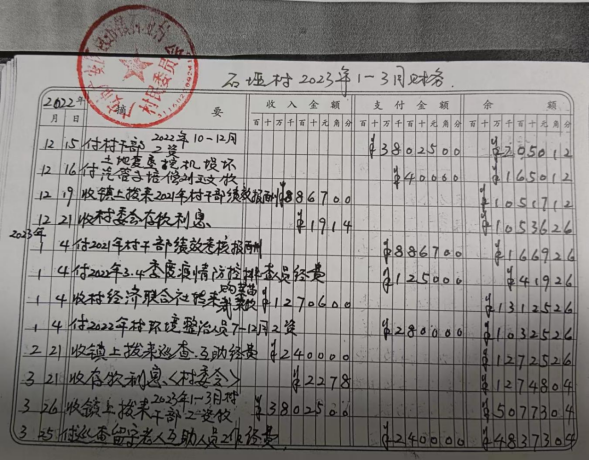 2023年1-3月财务
2022年 摘要 收入金额 支付金额 余额
月 日 百十万千百十元角分 百十万千百十元角分 百十万千百十元角分
12 15 付村干部2022年10-12月工资 ¥3802500 ¥205012
12 16 付 ¥40000 ¥165012
12 19 收镇上拨来2021年村干部绩效报酬 ¥886700 ¥1051712
12 21 收村委会存款利息 ¥1914 ¥1053626
2023年
1 4 付2021年村干部绩效考核报酬 ¥886700 ¥166926
1 4 付2022年3.4季度疫情防控排查员经费 ¥125000 ¥41926
1 4 收村经济联合社拨来 ¥1270600 ¥1312526
1 4 付2022年村环境整治员7-12月工资 ¥280000 ¥1032526
2 21 收镇上拨来巡查.互助经费 ¥240000 ¥1272526
3 21 收存款利息.<村委会> ¥2278 ¥1274804
3 26 收镇上拨来2023年1-3月村干部工资款 ¥3802500 ¥5077304
3 25 付巡查留守老人互助人员工作经费. ¥240000 ¥4837304
村民委员会